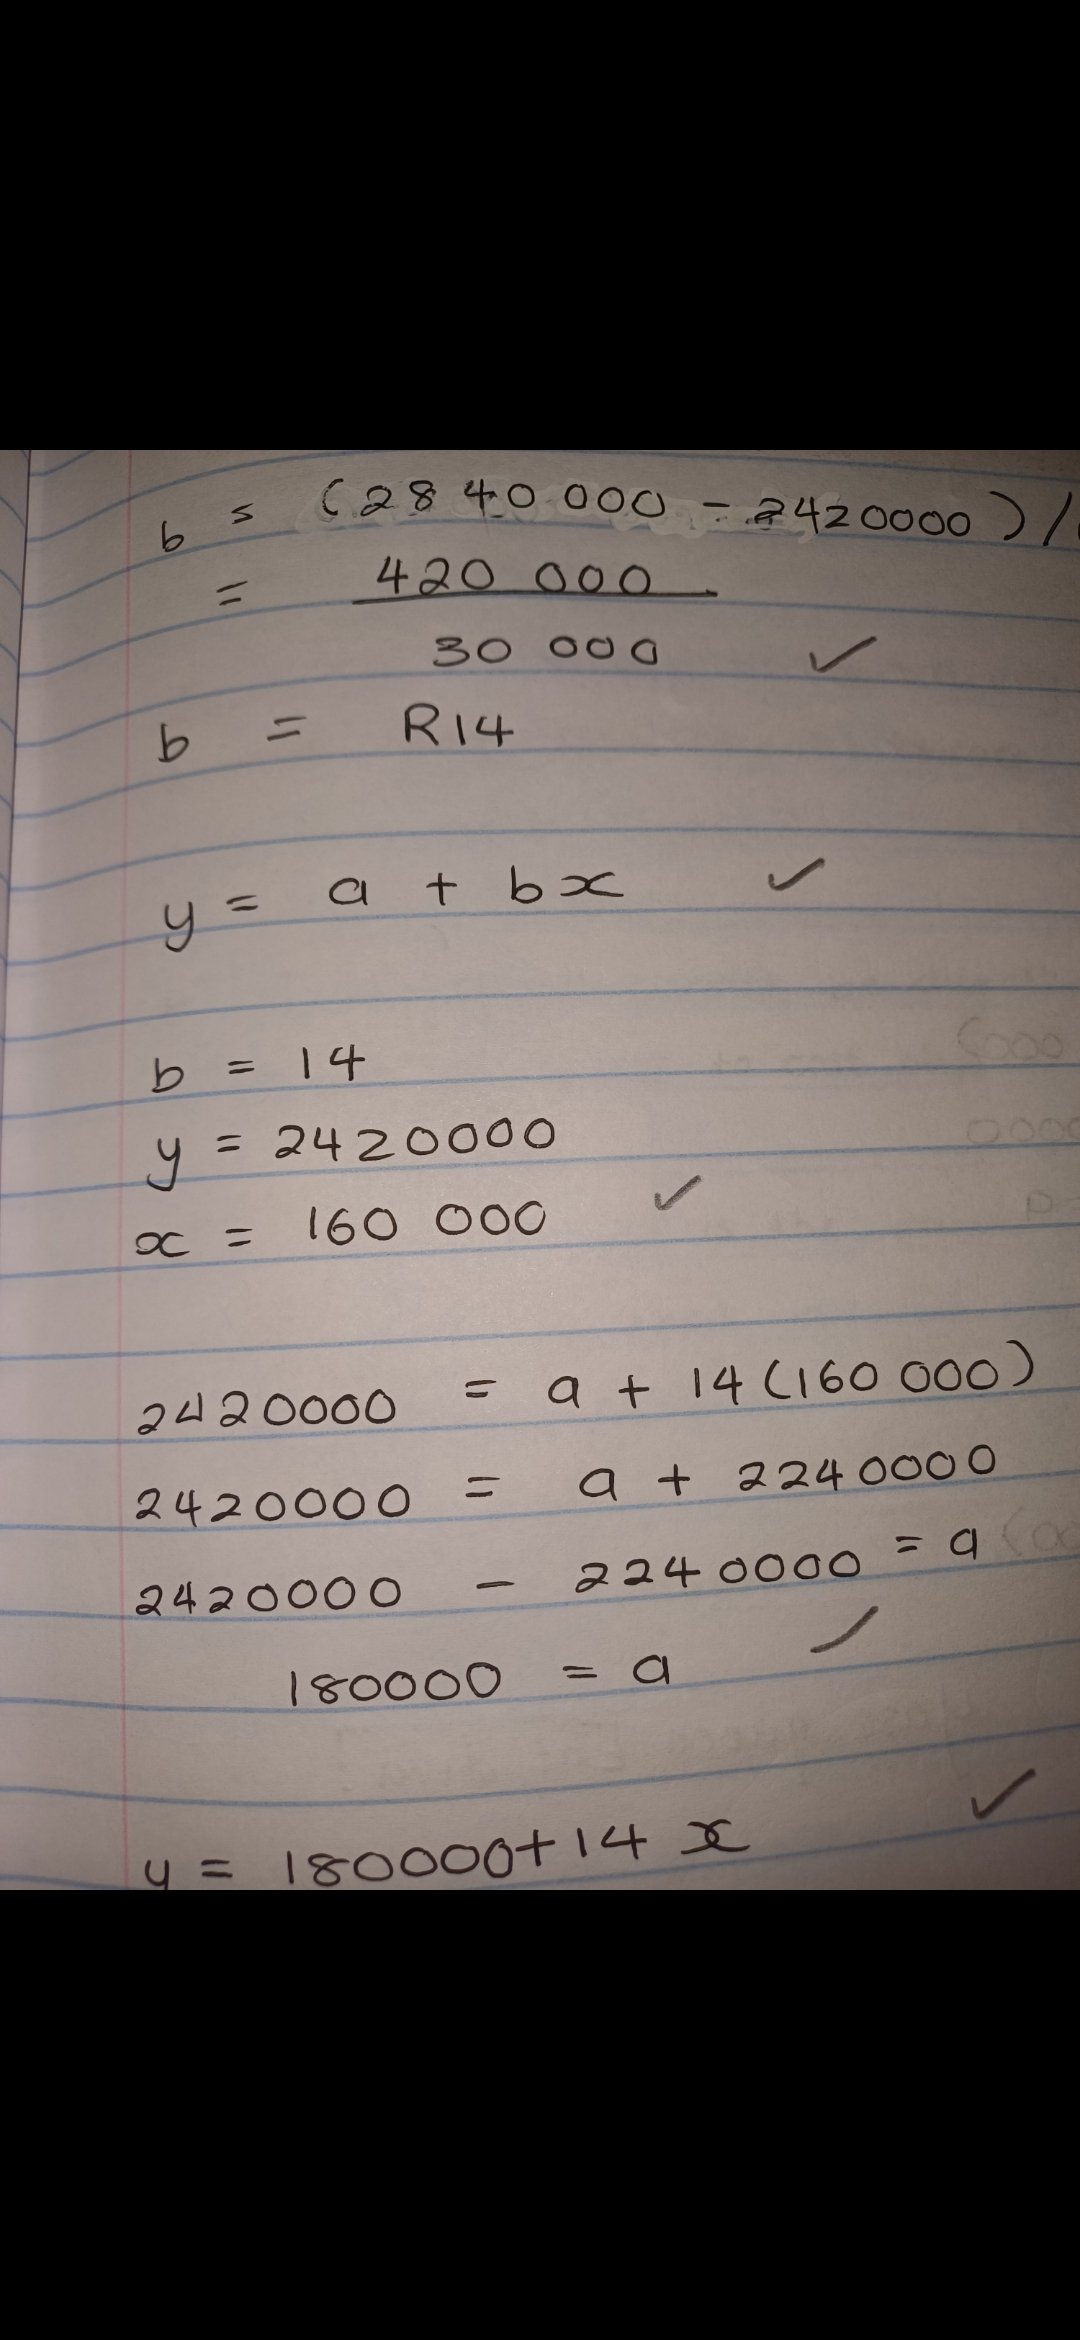 b = (2840 000 - 2420000) /
= 420 000
30 000 ✓
b = R14
y = a + bx ✓
b = 14
y = 2420000
x = 160 000 ✓
2420000 = a + 14(160 000)
2420000 = a + 2240000
2420000 - 2240000 = a
180000 = a ✓
y = 180000 + 14 x ✓